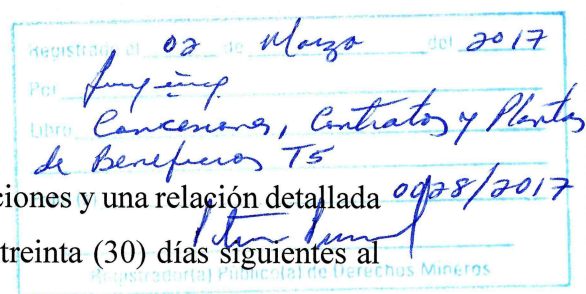 Registrado el 02 de Marzo del 2017
Por
Libro Concesiones, Contratos y Plantas
de Beneficios T5
ciones y una relación detallada 0028/2017
treinta (30) días siguientes al
Registrador(a) Público(a) de Derechos Mineros